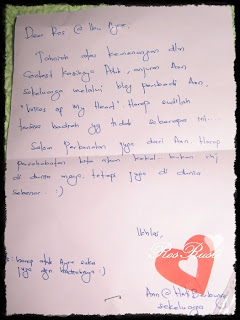 Dear Ros @ Ibu Ayu,
Tahniah atas kemenangan dlm
Contest Kasihnya Adik, anjuran Aan
sekeluarga melalui blog peribadi Aan,
"Voices of my Heart". Harap sudilah
terima hadiah yg tidak seberapa ini...
Salam Perkenalan juga dari Aan. Harap
persahabatan kita akan kekal bukan saja
di dunia maya, tetapi juga di dunia
sebenar.. :)
Ikhlas,
: harap adik Ayu suka
juga dgn hadiahnya :)
Aan @ Hati Berbunga
sekeluarga